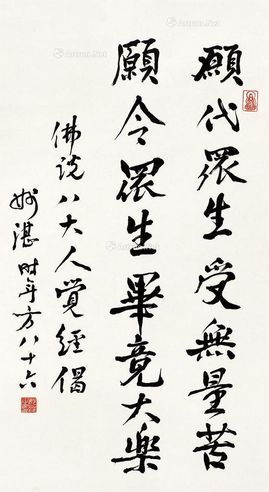 願代眾生受無量苦
願令眾生畢竟大樂
佛说八大人覺經偈
妙湛时年方八十六